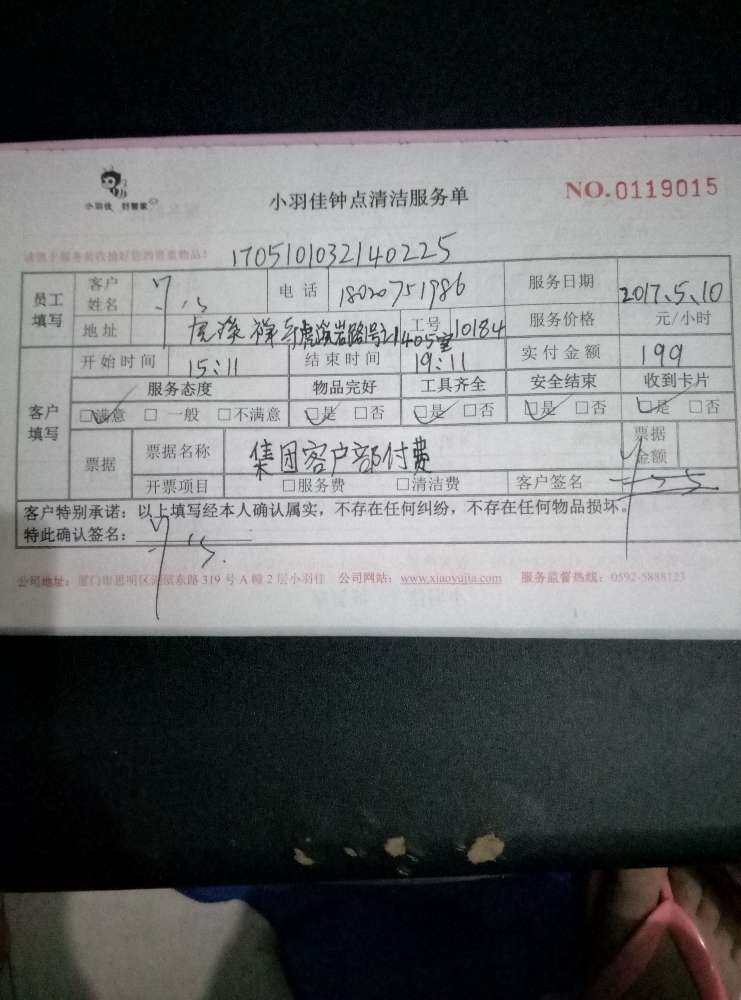 小羽佳 好管家
小羽佳钟点清洁服务单
NO.0119015
请您于服务前收拾好您的贵重物品!
170510103214 0225
员工填写 客户姓名 电话 18020751986 服务日期 2017.5.10
地址 虎溪岩路 号 1405室 工号 10184 服务价格 元/小时
开始时间 15:11 结束时间 19:11 实付金额 199
客户填写 服务态度 物品完好 工具齐全 安全结束 收到卡片
□满意 □一般 □不满意 □是 □否 □是 □否 □是 □否 □是 □否
票据 票据名称 集团客户部付费 票据金额
开票项目 □服务费 □清洁费 客户签名
客户特别承诺:以上填写经本人确认属实,不存在任何纠纷,不存在任何物品损坏。
特此确认签名:
公司地址:厦门市思明区 东路319号A幢2层小羽佳 公司网站:www.xiaoyujia.com 服务监督热线:0592-5888123